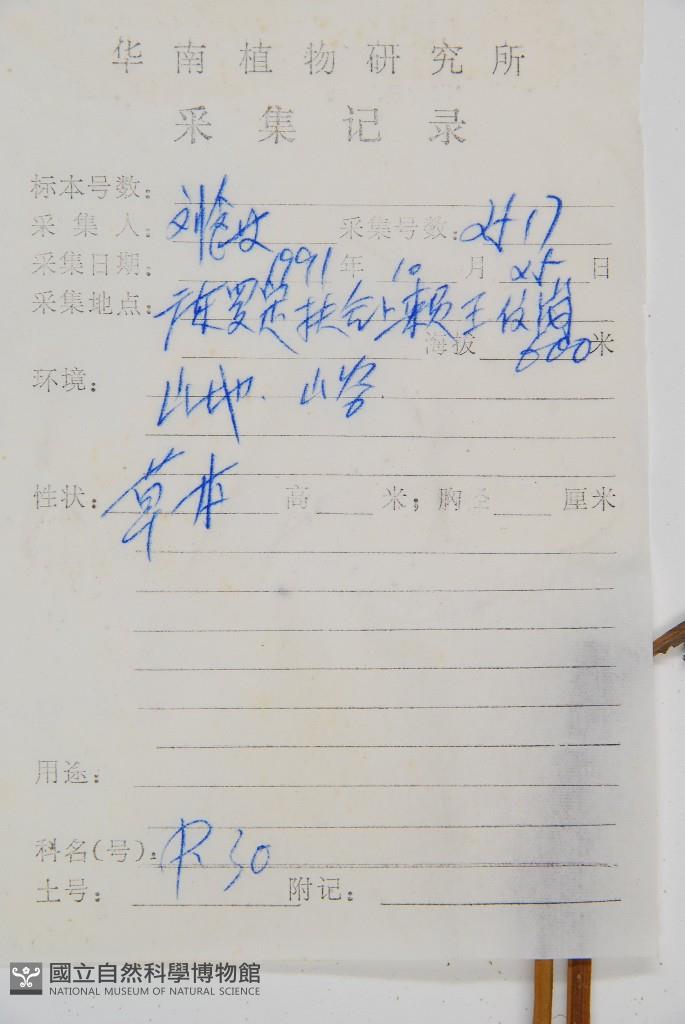 华南植物研究所
采集记录
标本号数:
采集人: 刘念 采集号数: 2517
采集日期: 1991年10月25日
采集地点: 广东罗定扶合上赖王
海拔 600米
环境: 山地. 山谷.
性状: 草本 高 米; 胸径 厘米
用途:
科名(号): P30
土号: 附记:
國立自然科學博物館
NATIONAL MUSEUM OF NATURAL SCIENCE